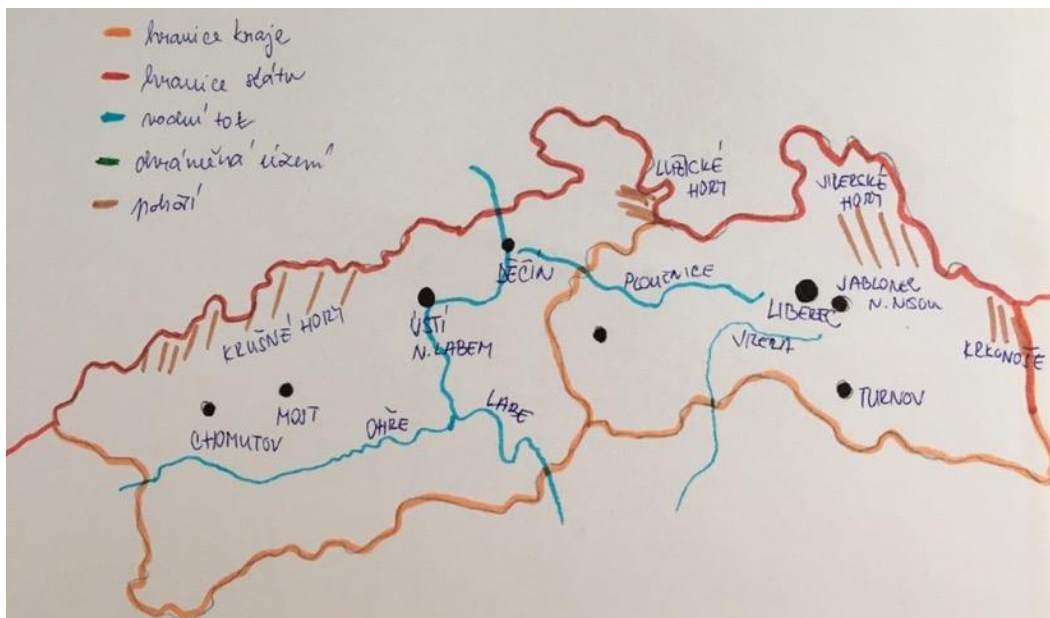 hranice kraje
hranice státu
vodní tok
chráněná území
pohoří
LUŽICKÉ
HORY
JIZERSKÉ
HORY
DĚČÍN
PLOUČNICE
LIBEREC
JABLONEC
N. NISOU
KRUŠNÉ HORY
ÚSTÍ
N. LABEM
JIZERA
KRKONOŠE
MOST
CHOMUTOV
OHŘE
LABE
TURNOV